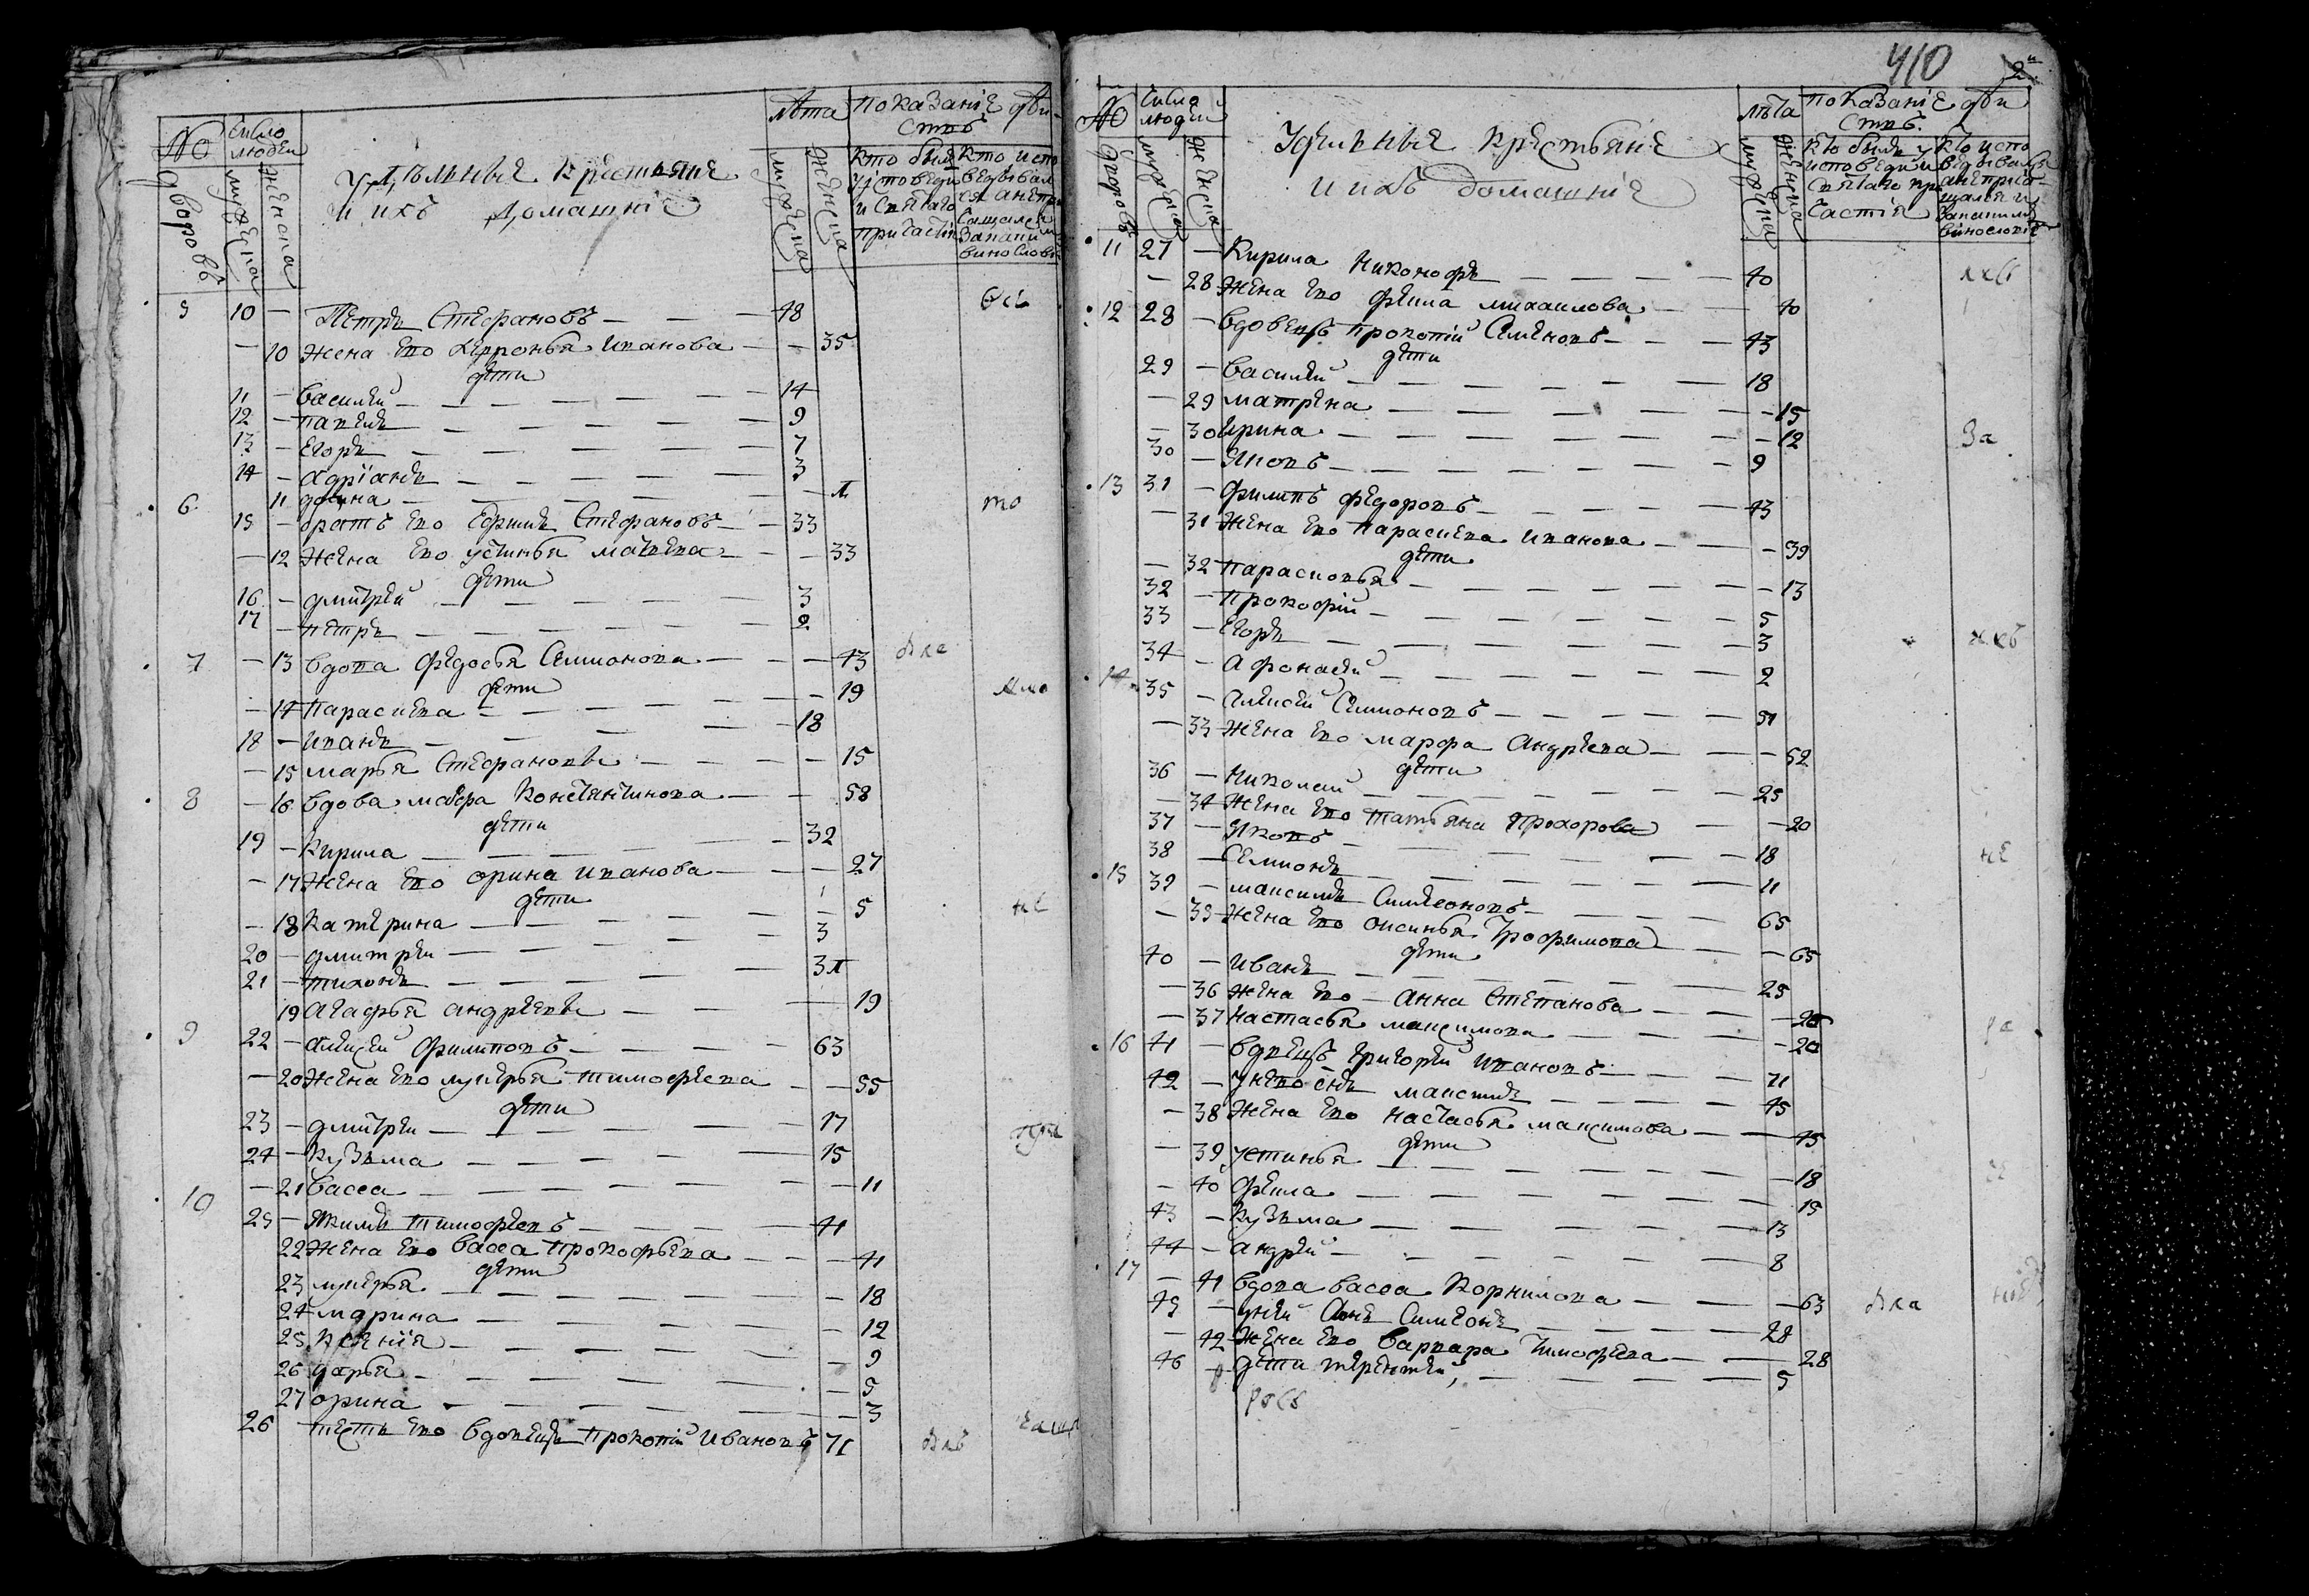 No
дворовъ
число людеи
мужеска
женска
удѣльныя крестьяне
и ихъ домашнiе
лѣта
мужеска
женска
показанiе дѣи-
ствъ
кто былъ
у исповеди
и святаго
причастiя
кто испо
ведывал
ся а не при
сащался и
за каки
винослов
5 10 — Петръ Стефановъ — 48
— 10 жена ево Ивановa — 35
дети
11 — василеи — 14
12 — павелъ — 9
13 — Егоръ — 7
14 — Адрiанъ — 3
11 — 1
6 15 — братъ ево Ефимъ Стефановъ — 33
— 12 жена ево устинья матвева — 33
дети
16 — дмитреи — 3
17 — петръ — 2
7 — 13 вдова федосья Семионова — 43
дети
— 14 парасцева — 19
18 — иванъ — 18
— 15 марья Стефановa — 15
8 — 16 вдова марфа Константинова — 58
дети
19 — Кирила — 32
— 17 жена ево орина иванова — 27
дети
— 18 катерина — 5
20 — дмитреи — 3
21 — тихонъ — 31
19 Агафья андреевa — 19
9 22 — Алексеи филиповъ — 63
— 20 жена ево лукерья тимофеева — 55
дети
23 — дмитреи — 17
24 — кузьма — 15
— 21 васса — 11
10 25 — Якимъ тимофеевъ — 41
22 жена ево васса прокофьева — 41
дети
23 лукерья — 18
24 марина — 12
25 ксенiя — 9
26 дарья — 5
27 орина — 3
26 тесть ево вдовецъ прокопiи Ивановъ 71
410
No
дворовъ
число людеи
мужеска
женска
Удельныя крестьяне
и ихъ домашнiе
лѣта
мужеска
женска
показанiе дѣи
ствъ.
кто былъ у
исповеди и
святаго при
частiя
кто испо
ведывался
а не прiоб
щался и
за каким
винословiе
11 27 — Кирила Никоноръ — 40
— 28 жена ево фекла михаилова — 40
12 28 — вдовецъ прокопiи Семеновъ — 43
дети
29 — василеи — 18
— 29 матрена — 15
— 30 Ирина — 12
30 — Яковъ — 9
13 31 — филипъ федоровъ — 43
— 31 жена ево парасцева иванова — 39
дети
— 32 парасковья — 13
32 — прокофiи — 5
33 — Егоръ — 3
34 — Афонасеи — 2
14 35 — Алексеи Семионовъ — 51
— 33 жена ево марфа Андреева — 52
дети
36 — николаи — 25
— 34 жена ево татьяна прохорова — 20
37 — Яковъ — 18
38 — Семионъ — 11
15 39 — максимъ Симеоновъ — 65
— 35 жена ево оксинья трофимова — 65
дети
40 — иванъ — 25
— 36 жена ево — анна степанова — 26
— 37 настасья максимова — 20
16 41 — вдовецъ григореи ивановъ — 71
42 — у нево сынъ максимъ — 45
— 38 жена ево настасья максимова — 45
дети
— 39 устинья — 18
— 40 фекла — 15
43 — кузьма — 13
44 — андреи — 8
17 — 41 вдова васса корнилова — 63
45 — у неи сынъ Симеонъ — 28
— 42 жена ево варвара тимофеева — 28
46 — дети терентеи — 5